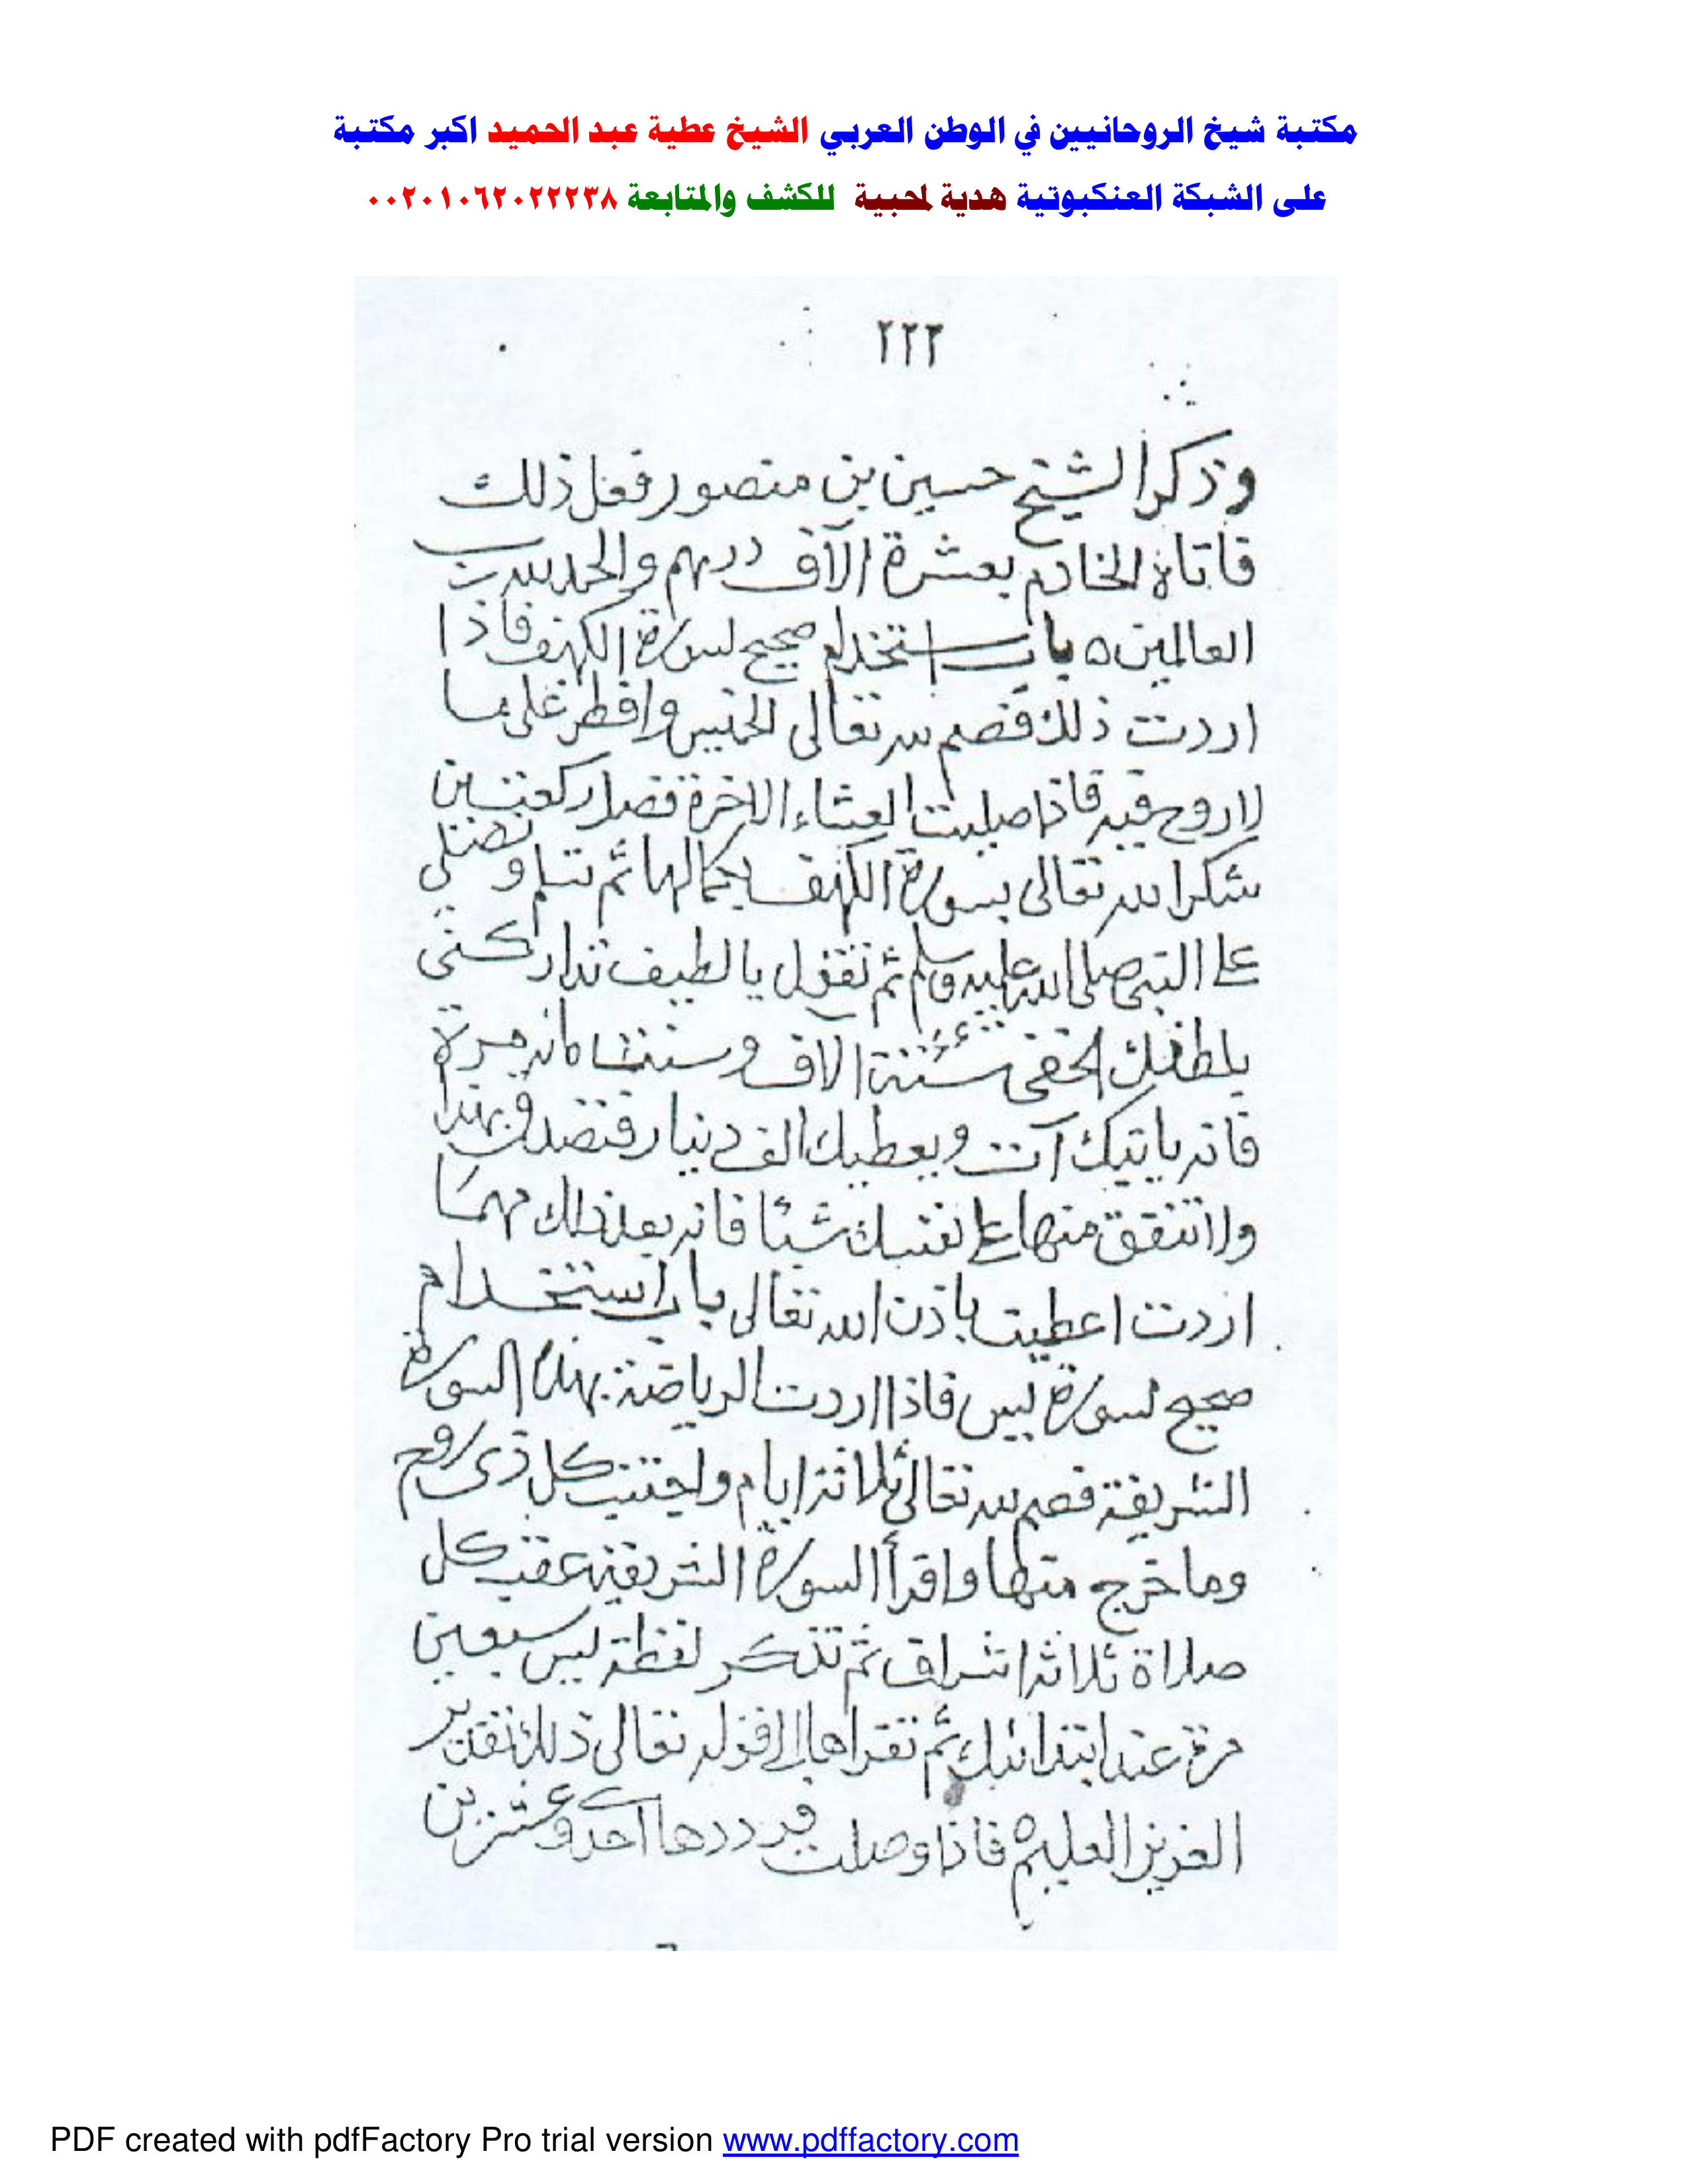 مكتبة شيخ الروحانيين في الوطن العربي الشيخ عطية عبد الحميد اكبر مكتبة
على الشبكة العنكبوتية هدية لمحبية للكشف والمتابعة ٠٠٢٠١٠٦٢٠٢٢٢٣٨
٢٢٢
وذكر الشيخ حسين بن منصور فعل ذلك
فاتاه الخادم بعشرة الآف درهم والحمد لله رب
العالمين ه باب استخدام صحيح لسورة الكهف فاذا
اردت ذلك فصم لله تعالى الخميس وافطر على ما
لاروح فيه فاذا صليت العشاء الاخرة فصل ركعتين
شكرا لله تعالى بسورة الكهف بكمالها ثم تسلم وتصلي
على النبي صلى الله عليه وسلم ثم تقول يا لطيف تداركني
بلطفك الخفي ستة آلاف وستماية مرة
فانه ياتيك آت ويعطيك الف دينار فتصدق بهذا
ولا تنفق منها على نفسك شيئا فانه بعد ذلك مهما
اردت اعطيت باذن الله تعالى باب استخدام
صحيح لسورة يس فاذا اردت الرياضة بهذه السورة
الشريفة فصم لله تعالى ثلاثة ايام واجتنب كل ذى روح
وما خرج منها واقرأ السورة الشريفة عقب كل
صلاة ثلاثا شراف ثم تذكر لفظة يس سبعين
مرة عند ابتدائك ثم تقراها الى قوله تعالى ذلك تقدير
العزيز العليم فاذا وصلت فرددها احد وعشرين
PDF created with pdfFactory Pro trial version www.pdffactory.com